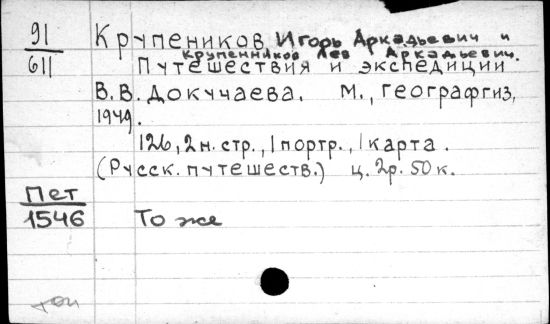 91
611
Крупеников Игорь Аркадьевич и
Крупенников Лев Аркадьевич.
Путешествия и экспедиции
В.В. Докучаева. М., Географгиз,
1949.
126, 2 н. стр., 1 портр., 1 карта.
(Русск. путешеств.) ц. 2р. 50 к.
Пет
1546 То же